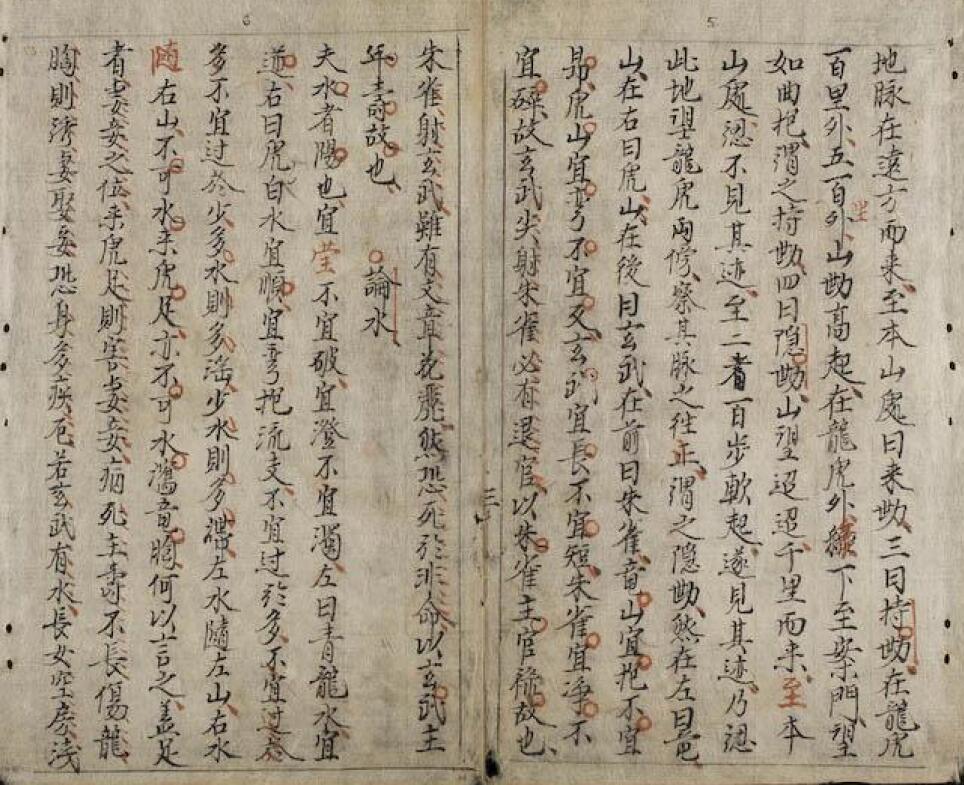 5
地脉在遠方而来至本山處曰来㔟三曰持㔟在龍虎
百里外五百外山㔟高起在龍虎外纏下至案門望
坐
如曲抱謂之持㔟四曰隐㔟山望迢迢千里而来至本
山處忽不見其迹至二者百步軟起遂見其迹乃認
此地望龍虎兩傍察其脉之徃正謂之隐㔟然在左曰竜
山在右曰虎山在後曰玄武在前曰朱雀竜山宜抱不宜
昻虎山宜弯不宜又玄武宜長不宜短朱雀宜净不
宜碎故玄武尖射朱雀必有退官以朱雀主官祿故也
三
6
朱雀射玄武雖有文章花飛然恐死於非命以玄武主
年壽故也 論水
夫水者陽也宜莹不宜破宜澄不宜濁左曰青龍水宜
遶右曰虎白水宜順宜弯抱流支不宜过於多不宜过
多不宜过於少多水則多滛少水則多 左水隨左山右水
随右山不可水来虎足亦不可水 竜胸何以言之盖足
者妻妾之位来虎足則害妻妾病死主壽不長傷龍
胸則 妻娶妾恐身多疾厄若玄武有水長女空房淺